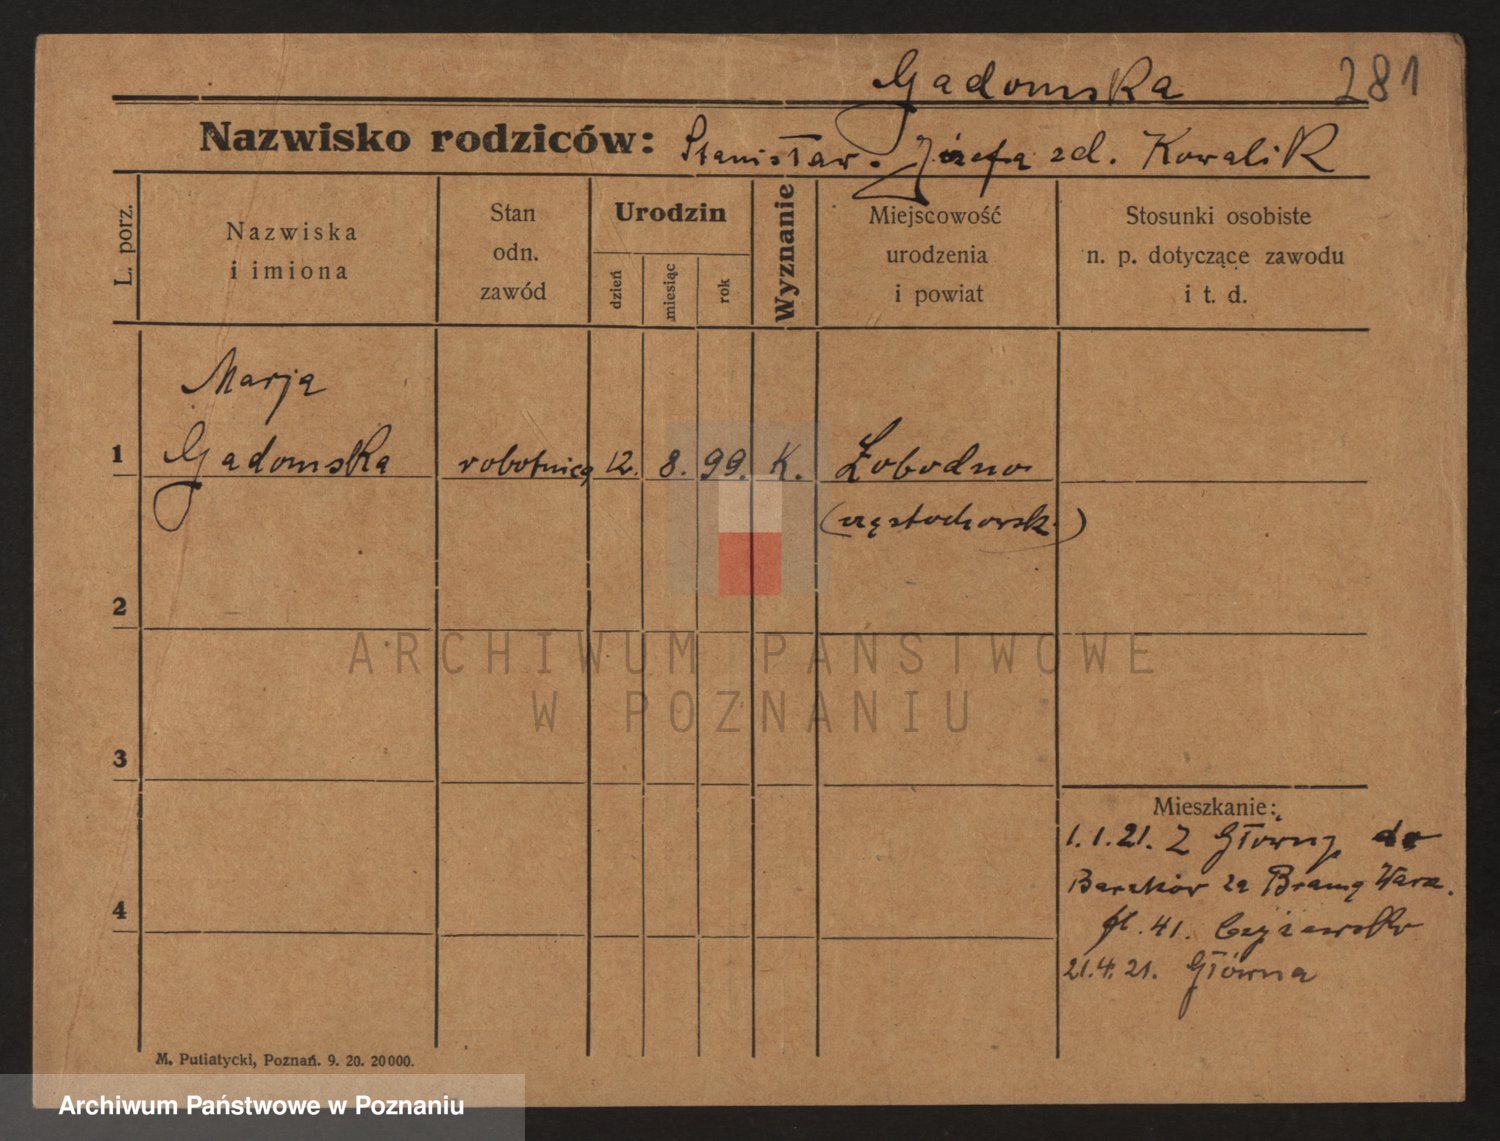 Gadomska 281
Nazwisko rodziców: Stanisław. Józefa zd. Kowalik
L. porz.
Nazwiska
i imiona
Stan
odn.
zawód
Urodzin
dzień
miesiąc
rok
Wyznanie
Miejscowość
urodzenia
i powiat
Stosunki osobiste
n. p. dotyczące zawodu
i t. d.
Marja
1 Gadomska robotnica 12. 8. 99. K. Łobodno
(częstochowsk.)
2
ARCHIWUM PAŃSTWOWE
W POZNANIU
3
Mieszkanie:
1.1.21. Z Główny do
Baraków za Bramą Warsz.
41.
4
21.4.21. Główna
M. Putiatycki, Poznań. 9. 20. 20000.
Archiwum Państwowe w Poznaniu